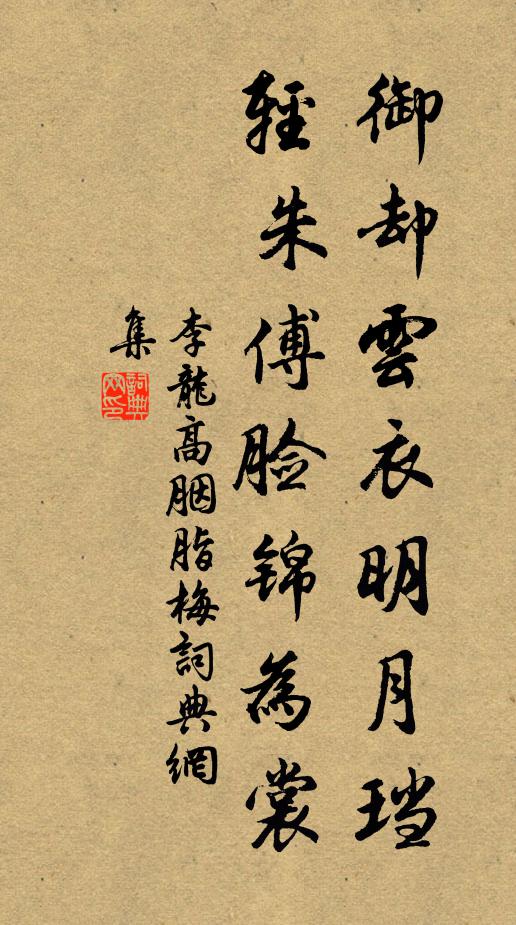 御却雲衣明月珰
輕朱傅臉錦為裳
李龍高胭脂梅詞典網
集
詞典網印